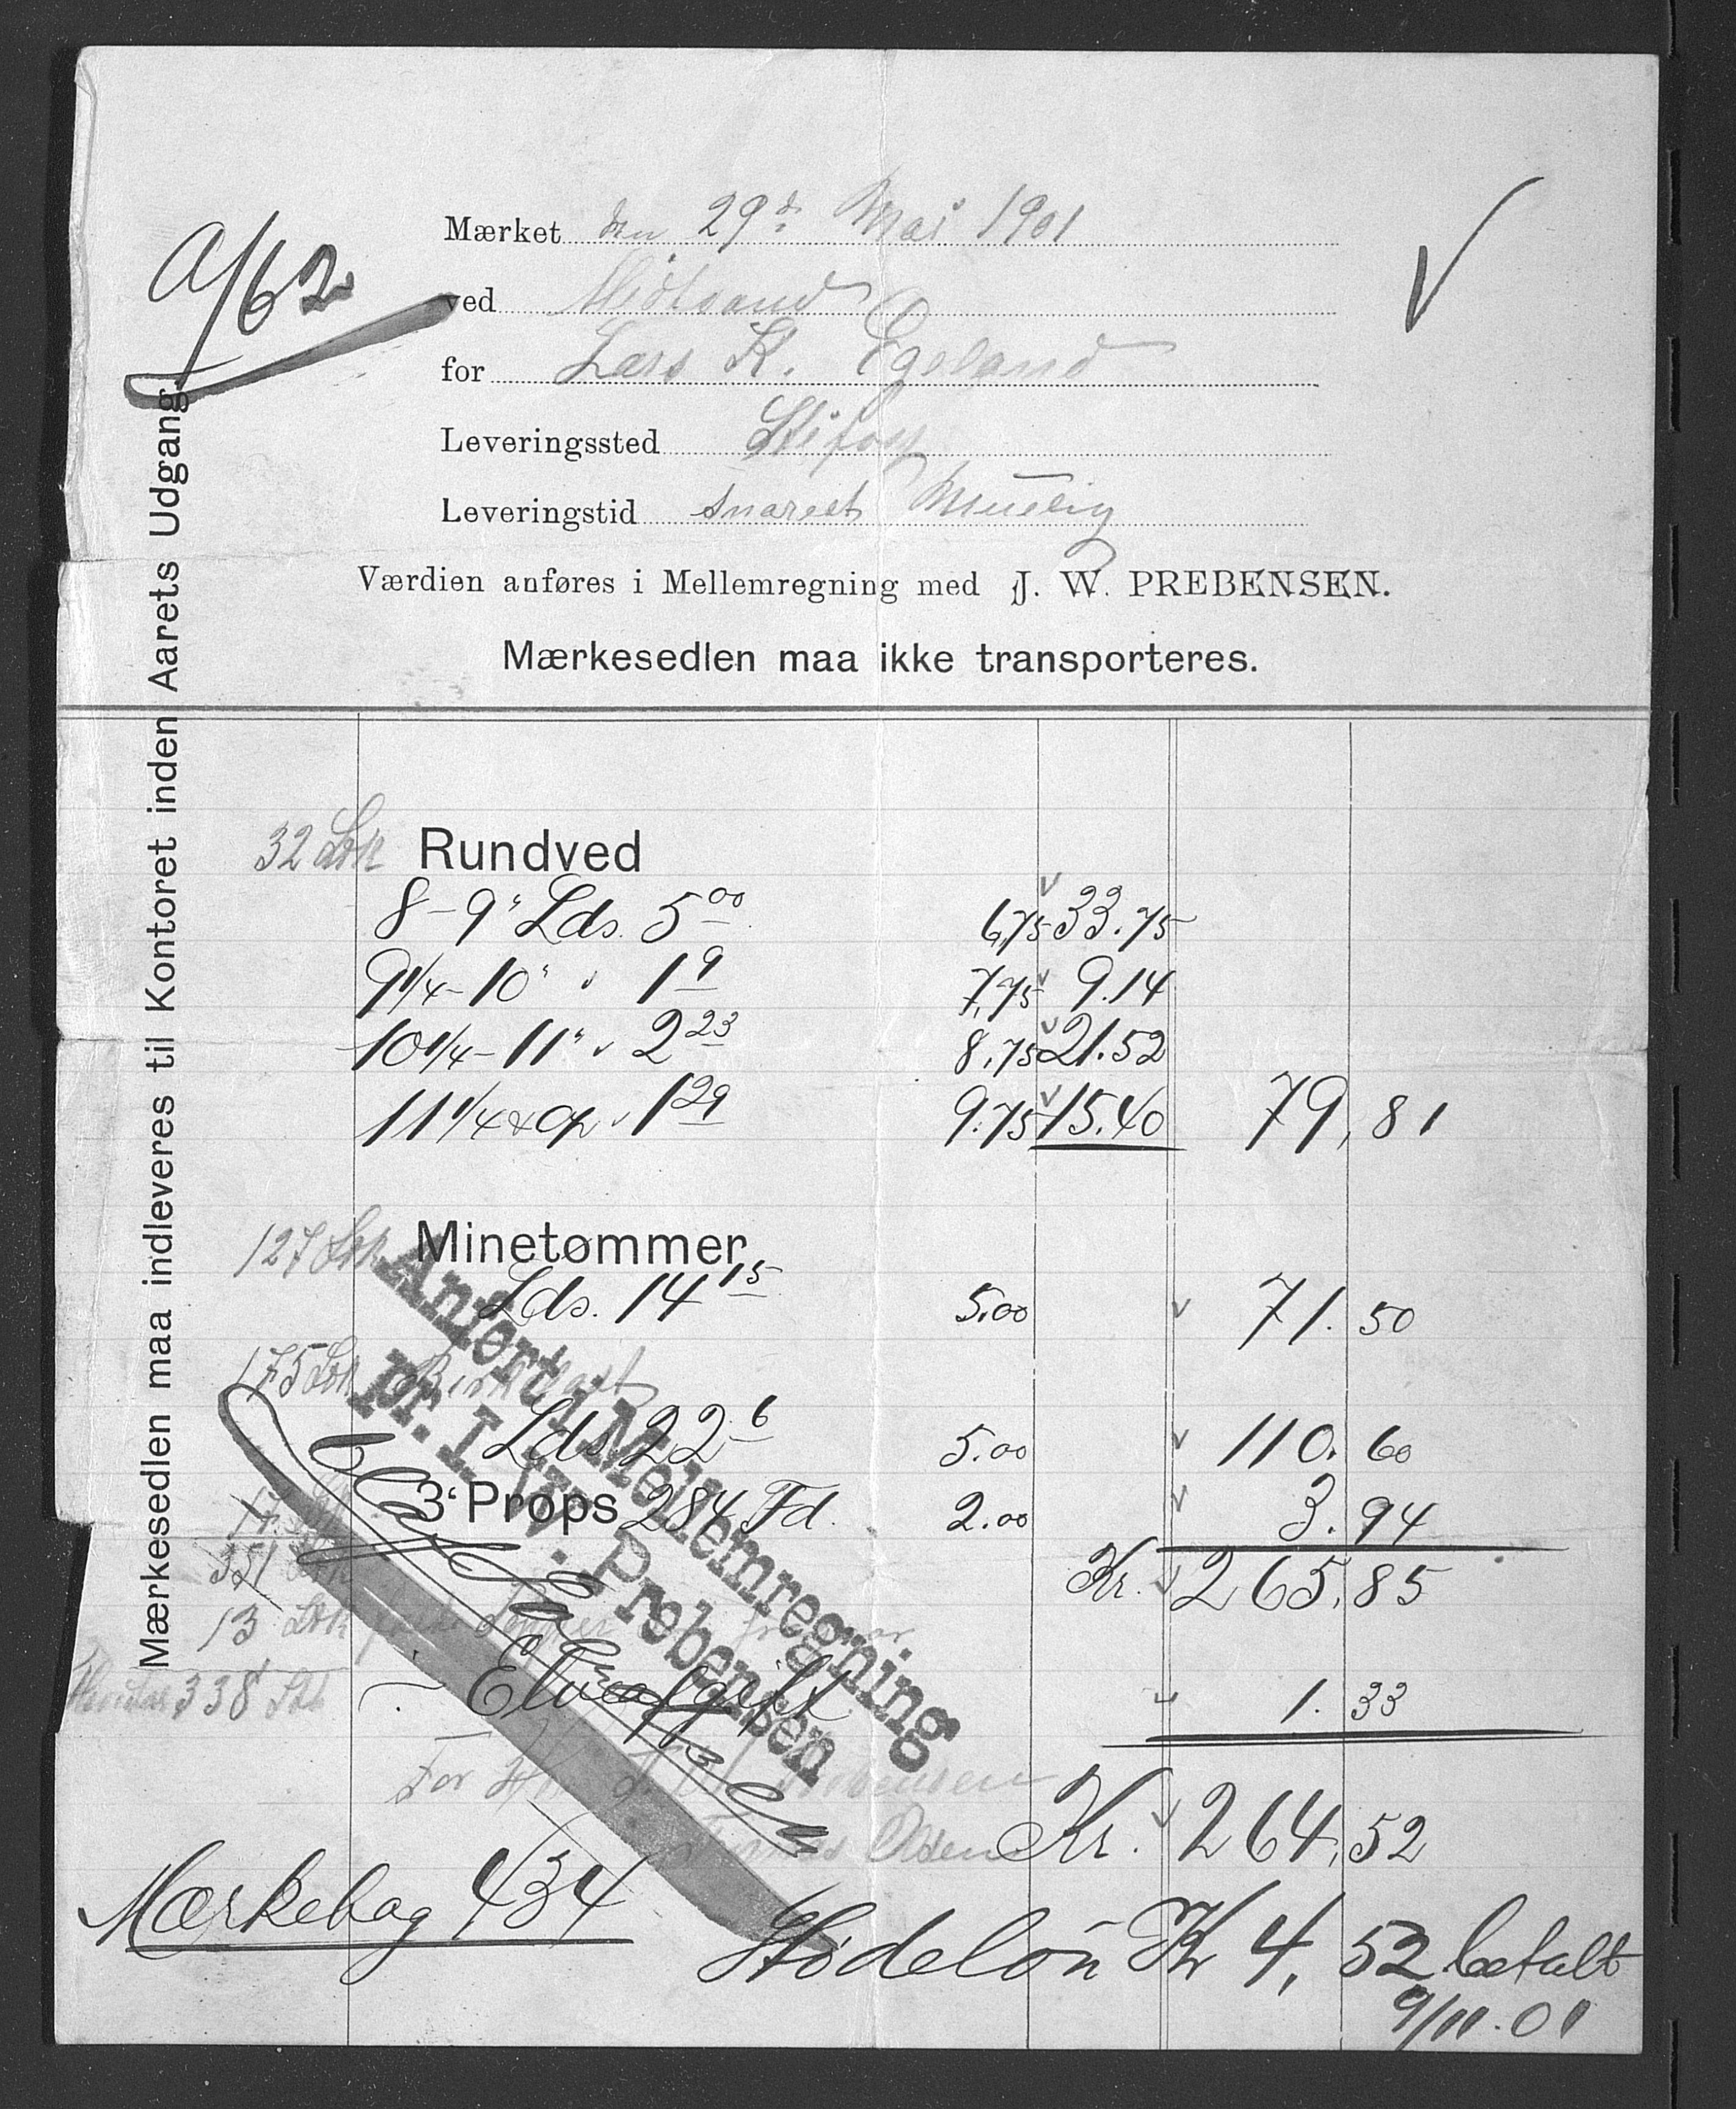 a/62
Mærket den 29de Mai 1901
ved Midtsand
for Lars K. Egeland
Leveringssted Stifoss
Leveringstid snarest Muelig
Værdien anføres i Mellemregning med J. W. PREBENSEN.
Mærkesedlen maa ikke transporteres.
Mærkesedlen maa indleveres til Kontoret inden Aarets Udgang.
32 Stk Rundved
8-9" Lds. 5 00 6,75 33.75
9 1/4-10" " 1 9 7,75 9.14
10 1/4-11" " 2 23 8,75 21.52
11 1/4 & op " 1 29 9.75 15.40 79,81
127 Stk Minetømmer
Lds. 14 15 5.00 71.50
175 Stk
Lds. 22 6 5.00 110.60
17 3" Props 284 Fd. 2.00 3.94
351 Stk Kr. 265,85
13 Stk
338 Stk ÷ Elveafgift 1.33
Anført i Mellemregning
pr. I. W. Prebensen
For J. W. Prebensen
Olsen Kr. 264,52
Mærkebog 434
Flødeløn Kr 4,52 betalt
9/11.01